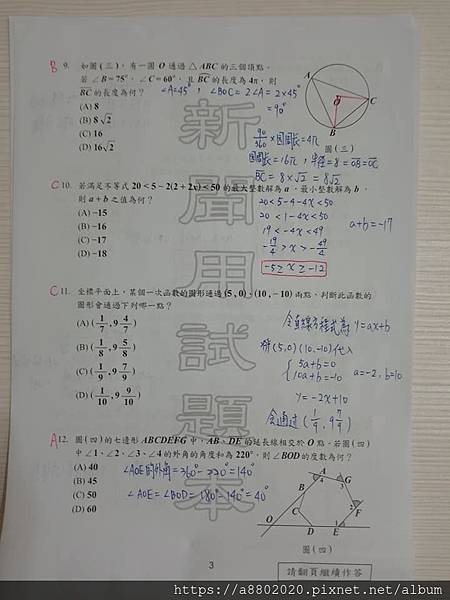 B 9. 如圖(三)，有一圓 O 通過 △ABC 的三個頂點。
若 ∠B=75°，∠C=60°，且 BC 的長度為 4π，則
BC 的長度為何？
∠A=45°，∠BOC=2∠A=2×45°
=90°
(A) 8
(B) 8√2
(C) 16
(D) 16√2
A
O
C
B
圖(三)
90/360 × 圓周長=4π
圓周長=16π，半徑=8=OB=OC
BC=8×√2=8√2
C 10. 若滿足不等式 20<5-2(2+2x)<50 的最大整數解為 a，最小整數解為 b，
則 a+b 之值為何？
(A) -15
(B) -16
(C) -17
(D) -18
20<5-4-4x<50
20<1-4x<50
19<-4x<49
-19/4>x>-49/4
-5≥x≥-12
a+b=-17
C 11. 坐標平面上，某個一次函數的圖形通過 (5,0)、(10,-10) 兩點，判斷此函數的
圖形會通過下列哪一點？
(A) (1/7, 9 4/7)
(B) (1/8, 9 5/8)
(C) (1/9, 9 7/9)
(D) (1/10, 9 9/10)
令直線方程式為 y=ax+b
將(5,0)(10,-10)代入
5a+b=0
10a+b=-10
a=-2, b=10
y=-2x+10
會通過 (1/9, 9 7/9)
A 12. 圖(四)的七邊形 ABCDEFG 中，AB、DE 的延長線相交於 O 點。若圖(四)
中 ∠1、∠2、∠3、∠4 的外角的角度和為 220°，則 ∠BOD 的度數為何？
(A) 40
(B) 45
(C) 50
(D) 60
∠AOE的外角=360°-220°=140°
∠AOE=∠BOD=180°-140°=40°
A
G
B
F
C
O
D
E
4
3
2
1
圖(四)
新聞用試題本
3
請翻頁繼續作答
https://a8802020.pixnet.net/album